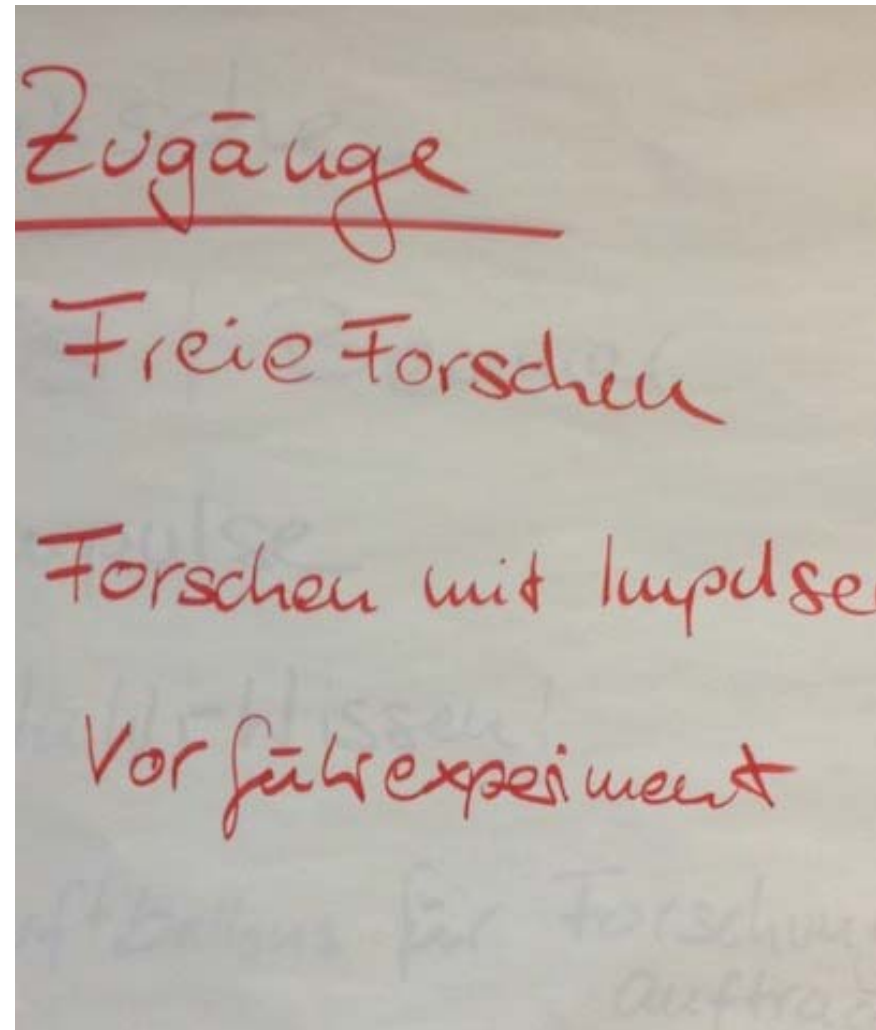 Zugänge
Freie Forschen
Forschen mit Impulse
Vorführexperiment
für Forschung